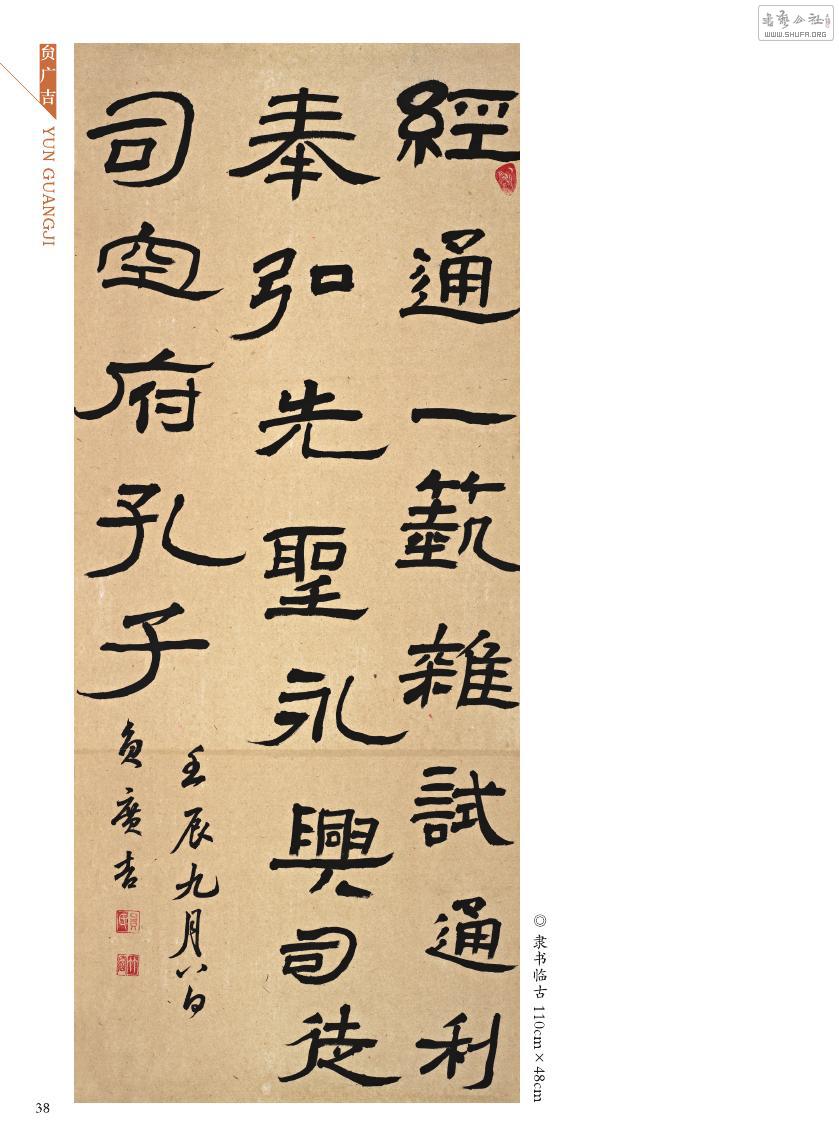 WWW.SHUFA.ORG
贠广吉
YUN GUANGJI
經通一藝雜試通利
奉弘先聖永興司徒
司空府孔子
壬辰九月八日
貟廣吉
◎ 隶书临古 110cm×48cm
38